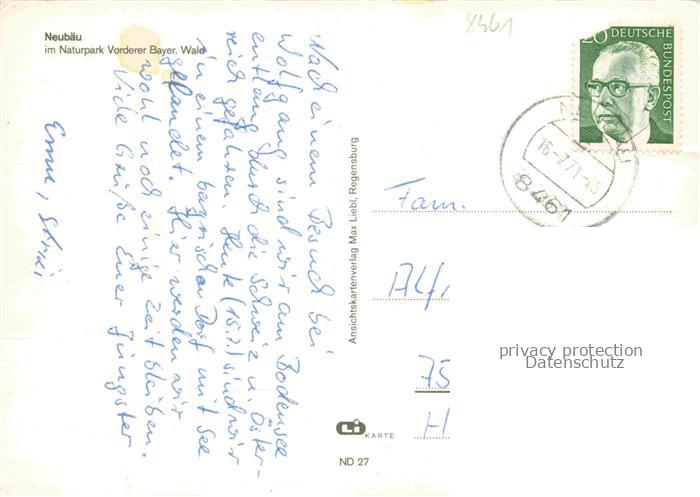 Neubäu
im Naturpark Vorderer Bayer. Wald
8461
20 DEUTSCHE
BUNDESPOST
16.-7.71-
8461
Nach einem Besuch bei
Wolfgang sind wir am Bodensee
entlang durch die Schweiz u. Öster-
reich gefahren. Heute (15.7.) sind wir
in einem bayrischen Dorf mit See
gelandet. Hier werden wir
wohl noch einige Zeit bleiben.
Viele Grüße Euer Jüngster
Erne,
Ansichtskartenverlag Max Liebl, Regensburg
Fam.
Alf
75
H
privacy protection
Datenschutz
Li KARTE
ND 27